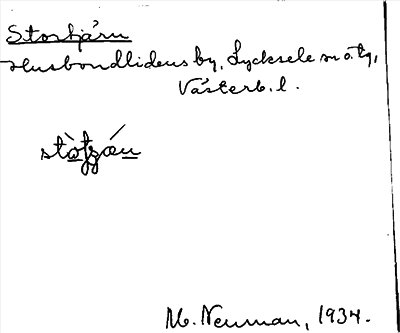 Stortjärn
Husbondlidens by, Lycksele sn o. tg,
Västerb. l.
M. Neuman, 1934.